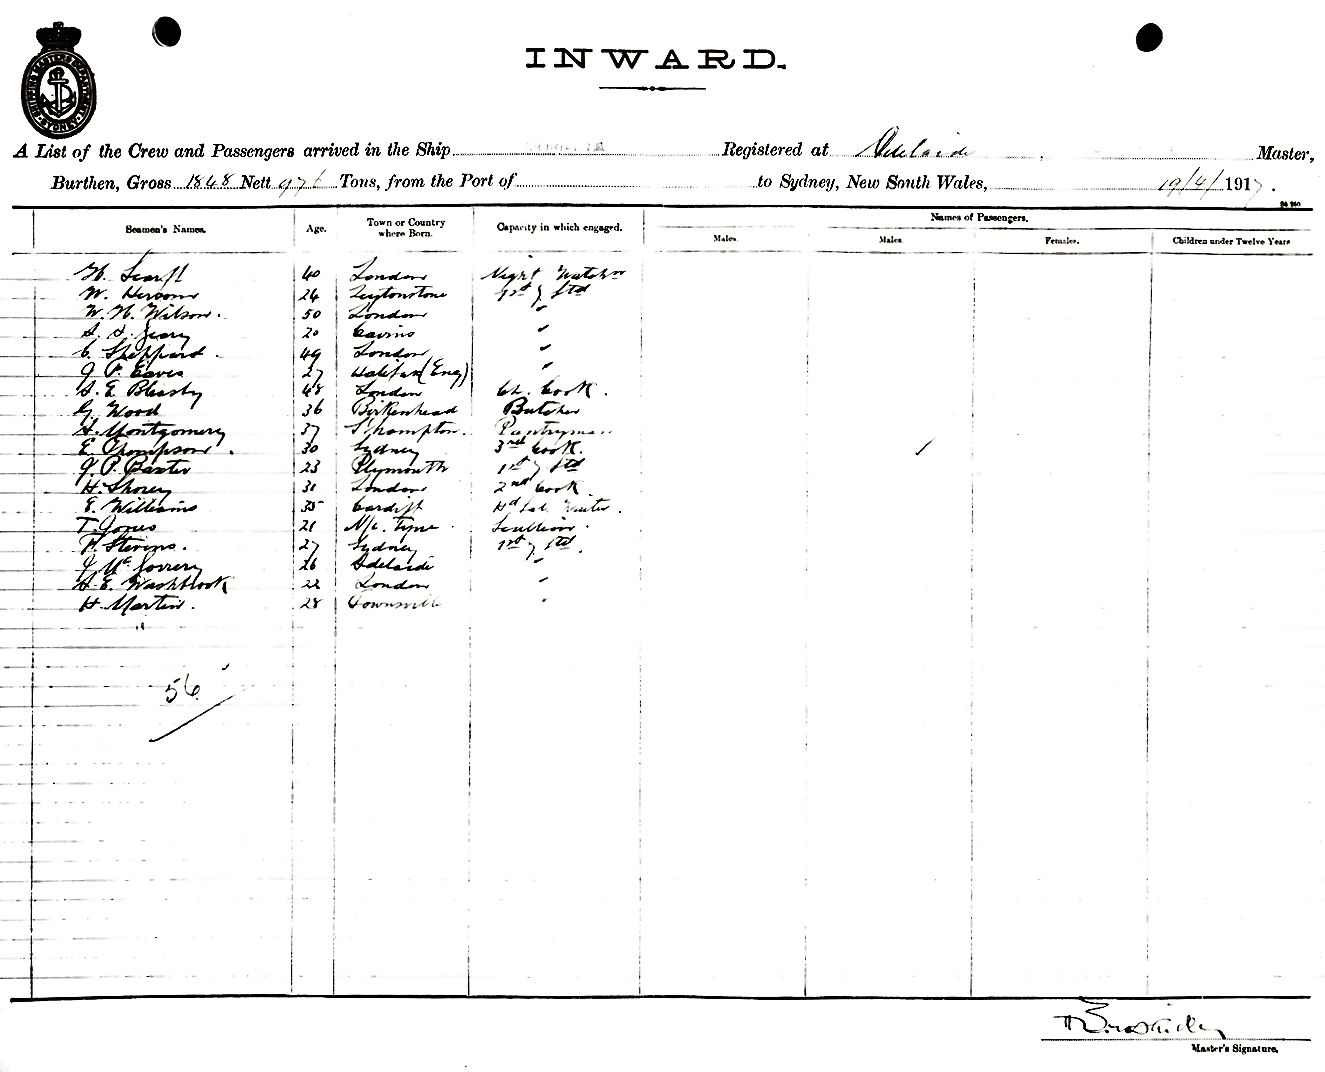 INWARD.
SHIPPING MASTERS DEPARTMENT SYDNEY
A List of the Crew and Passengers arrived in the Ship Registered at Adelaide Master,
Burthen, Gross 1848 Nett Tons, from the Port of to Sydney, New South Wales, 19/4/1917.
Names of Passengers.
Seamen's Names. Age. Town or Country where Born. Capacity in which engaged. Males. Males. Females. Children under Twelve Years
40 London Night
W. 26 Leytonstone
W. H. Wilson. 50 London "
20 "
C. Sheppard. 49 London "
J P. Eaves 27 Halifax (Eng) "
A. E. 48 London Ch. Cook.
G. Wood 36 Birkenhead Butcher
A. Montgomery 37 S'hampton. Pantryman
E. Thompson. 30 Sydney 3rd Cook.
J. P. Baxter 23 Plymouth
H. Shorey 31 London 2nd Cook
E. Williams 35 Cardiff
T. Jones 21 Scullion.
F. Stevens. 27 Sydney
26 Adelaide "
A. E. Washbrook 22 London "
H. Martin. 28 Townsville "
56
Master's Signature.